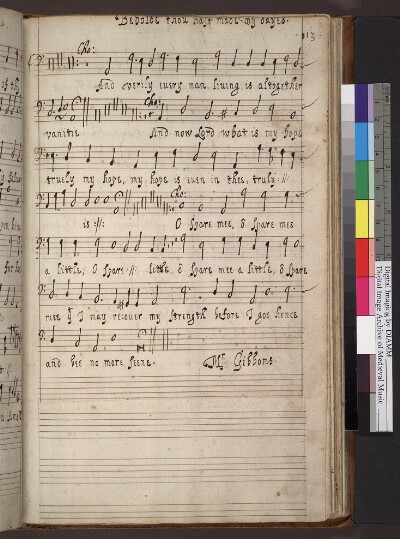 Beholde thou hast made my dayes.
113
Cho:
And verily every man living is altogether
Cho:
vanitie And now Lord what is my hope
truely my hope, my hope is even in thee, truly :||:
Cho:
is :||: O spare mee, ô spare mee
a little, O spare :||: little, ô spare mee a little, ô spare
mee yt I may recover my strength before I goe hence
and bee no more seene. Mr Gibbons
Digital Imaging by DIAMM
Digital Image Archive of Medieval Music